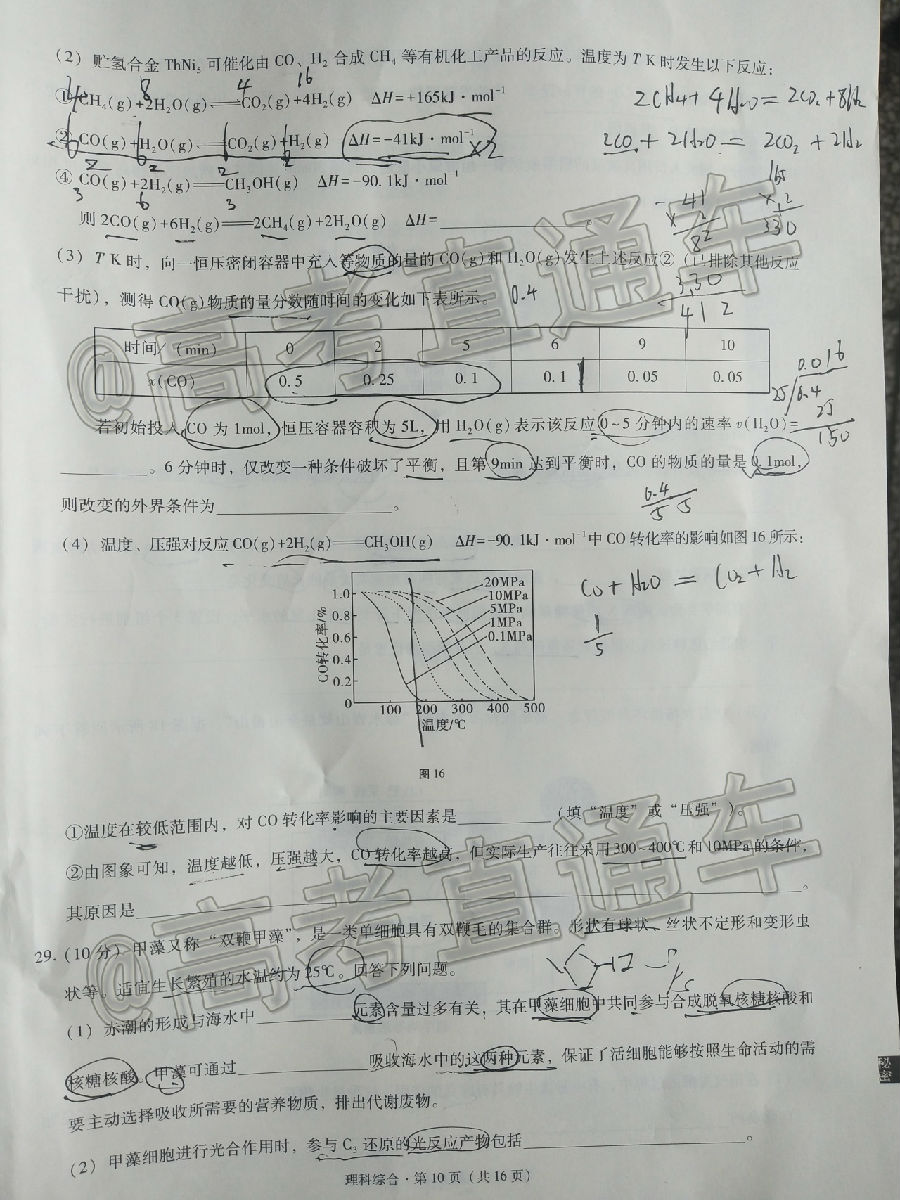 (2) 贮氢合金ThNi5可催化由CO、H2合成CH4等有机化工产品的反应。温度为T K时发生以下反应:
① CH4(g)+2H2O(g)══CO2(g)+4H2(g) ΔH=+165kJ·mol-1
② CO(g)+H2O(g)══CO2(g)+H2(g) ΔH=-41kJ·mol-1 ×2
④ CO(g)+2H2(g)══CH3OH(g) ΔH=-90.1kJ·mol-1
则2CO(g)+6H2(g)══2CH4(g)+2H2O(g) ΔH=
2CH4+4H2O=2CO2+8H2
2CO+2H2O=2CO2+2H2
165
×2
330
41
×2
82
330
412
(3) T K时,向一恒压密闭容器中充入等物质的量的CO(g)和H2O(g)发生上述反应②(已排除其他反应
干扰),测得CO(g)物质的量分数随时间的变化如下表所示。 0.4
时间/(min) 0 2 5 6 9 10
x(CO) 0.5 0.25 0.1 0.1 0.05 0.05
0.016
25 0.4
25
150
若初始投入CO为1mol,恒压容器容积为5L,用H2O(g)表示该反应0~5分钟内的速率v(H2O)=
。6分钟时,仅改变一种条件破坏了平衡,且第9min达到平衡时,CO的物质的量是0.1mol,
则改变的外界条件为。
0.4
5 5
(4) 温度、压强对反应CO(g)+2H2(g)══CH3OH(g) ΔH=-90.1kJ·mol-1中CO转化率的影响如图16所示:
CO+H2O=CO2+H2
1
5
CO转化率/%
1.0
0.8
0.6
0.4
0.2
0
20MPa
10MPa
5MPa
1MPa
0.1MPa
100 200 300 400 500
温度/℃
图16
①温度在较低范围内,对CO转化率影响的主要因素是(填“温度”或“压强”)。
②由图象可知,温度越低,压强越大,CO转化率越高,但实际生产往往采用300~400℃和10MPa的条件,
其原因是。
29.(10分) 甲藻又称“双鞭甲藻”,是一类单细胞具有双鞭毛的集合群。形状有球状、丝状不定形和变形虫
状等。适宜生长繁殖的水温约为25℃。回答下列问题。
(1) 赤潮的形成与海水中元素含量过多有关,其在甲藻细胞中共同参与合成脱氧核糖核酸和
核糖核酸。甲藻可通过吸收海水中的这两种元素,保证了活细胞能够按照生命活动的需
要主动选择吸收所需要的营养物质,排出代谢废物。
(2) 甲藻细胞进行光合作用时,参与C3还原的光反应产物包括。
理科综合·第10页(共16页)
@高考直通车
@高考直通车